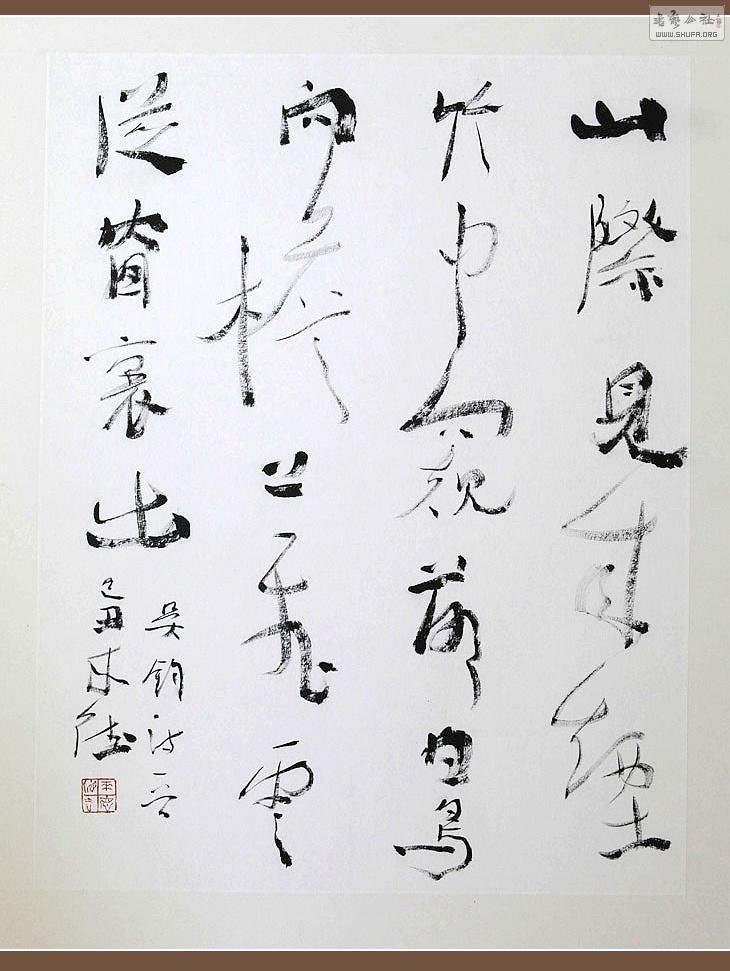 山際見來煙
竹中窺落日鳥
向檐上飛雲
從窗裏出
吳鈞詩一首
己丑
書藝公社
WWW.SHUFA.ORG